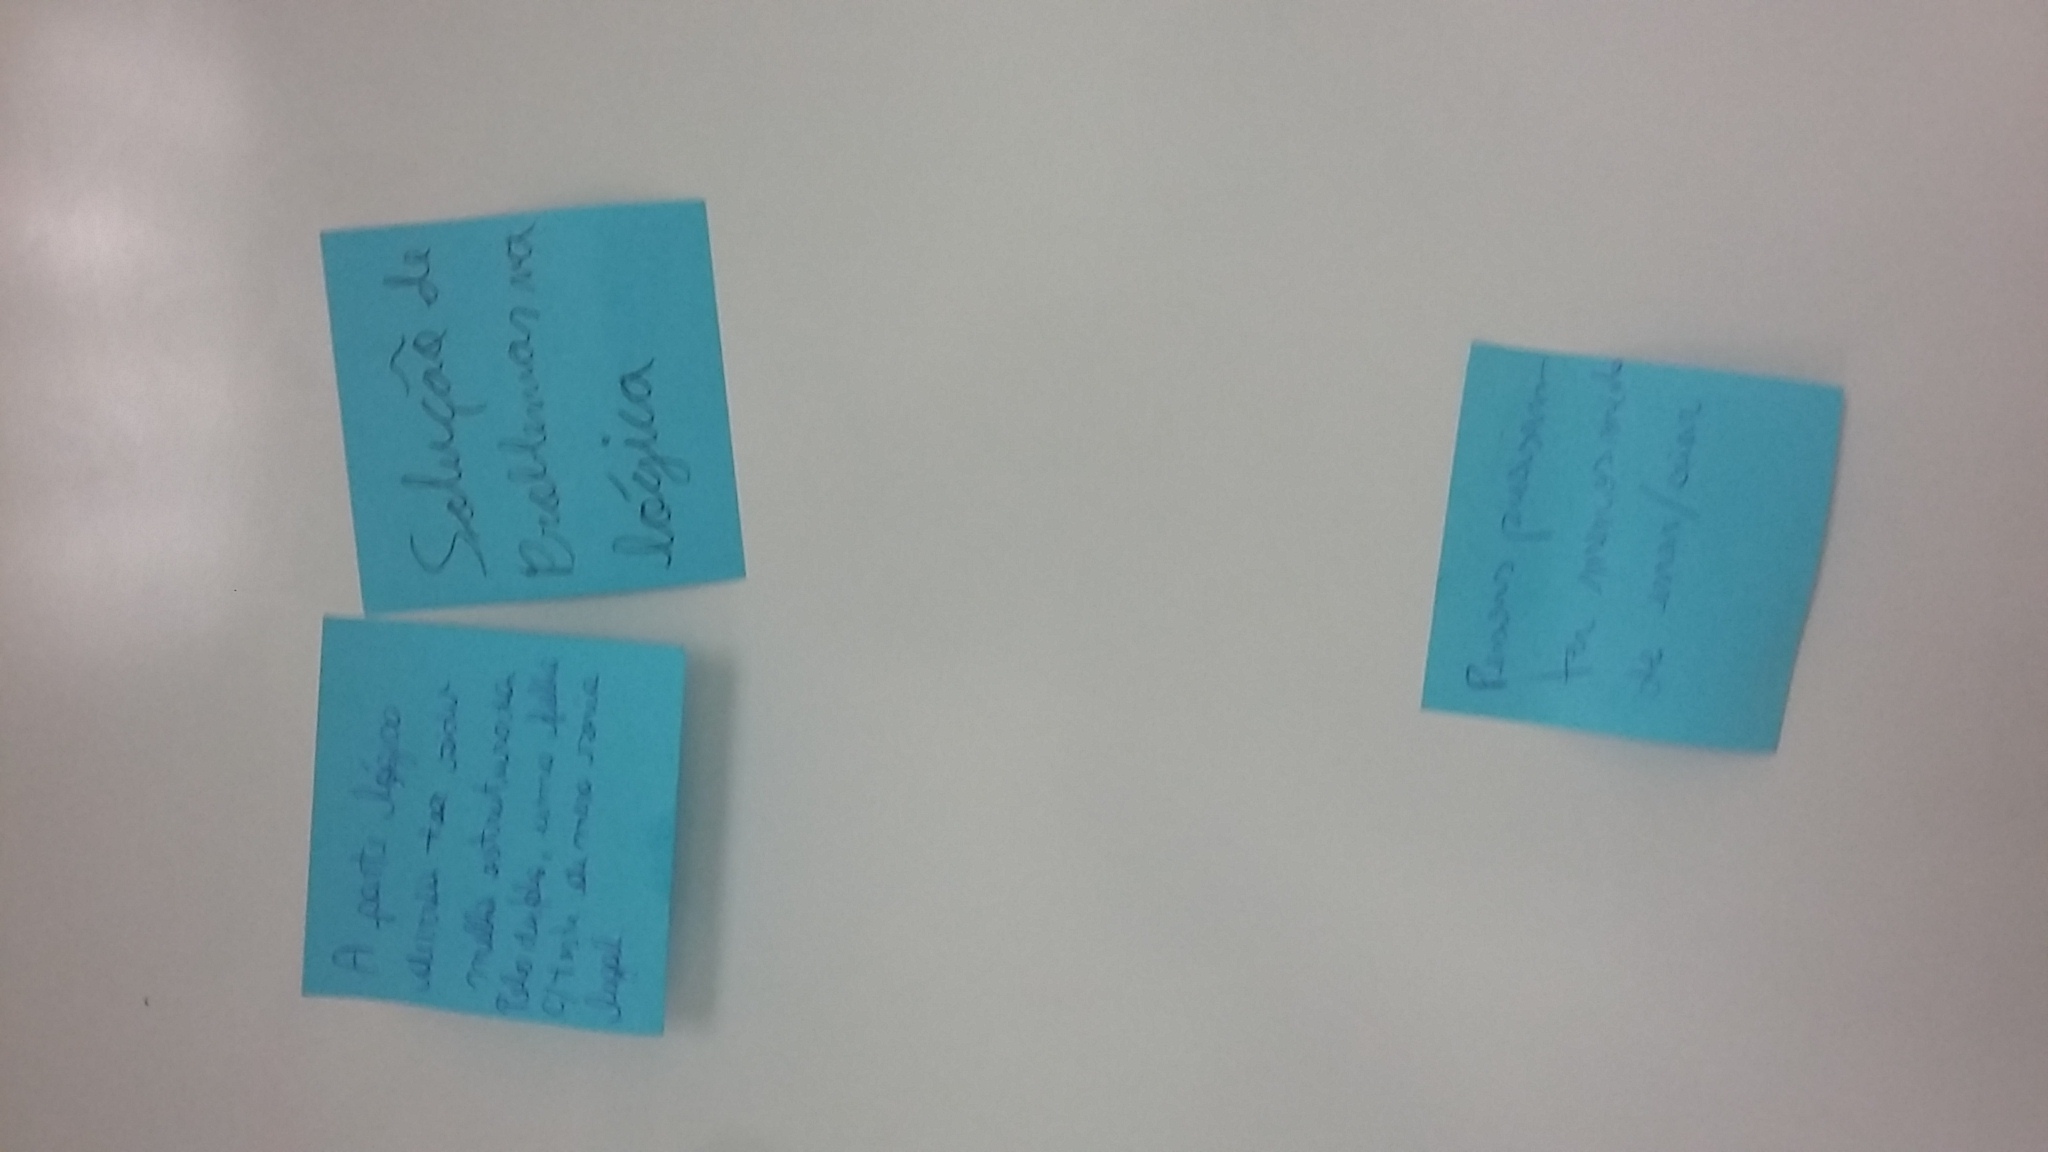 A parte lógica
deveria ter sido
melhor estruturada
Pelo dupla, uma folha
c/ teste de mesa seria
legal
Solução de
Problemas na
lógica
Pessoas precisam
ter menos medo
de errar/criar